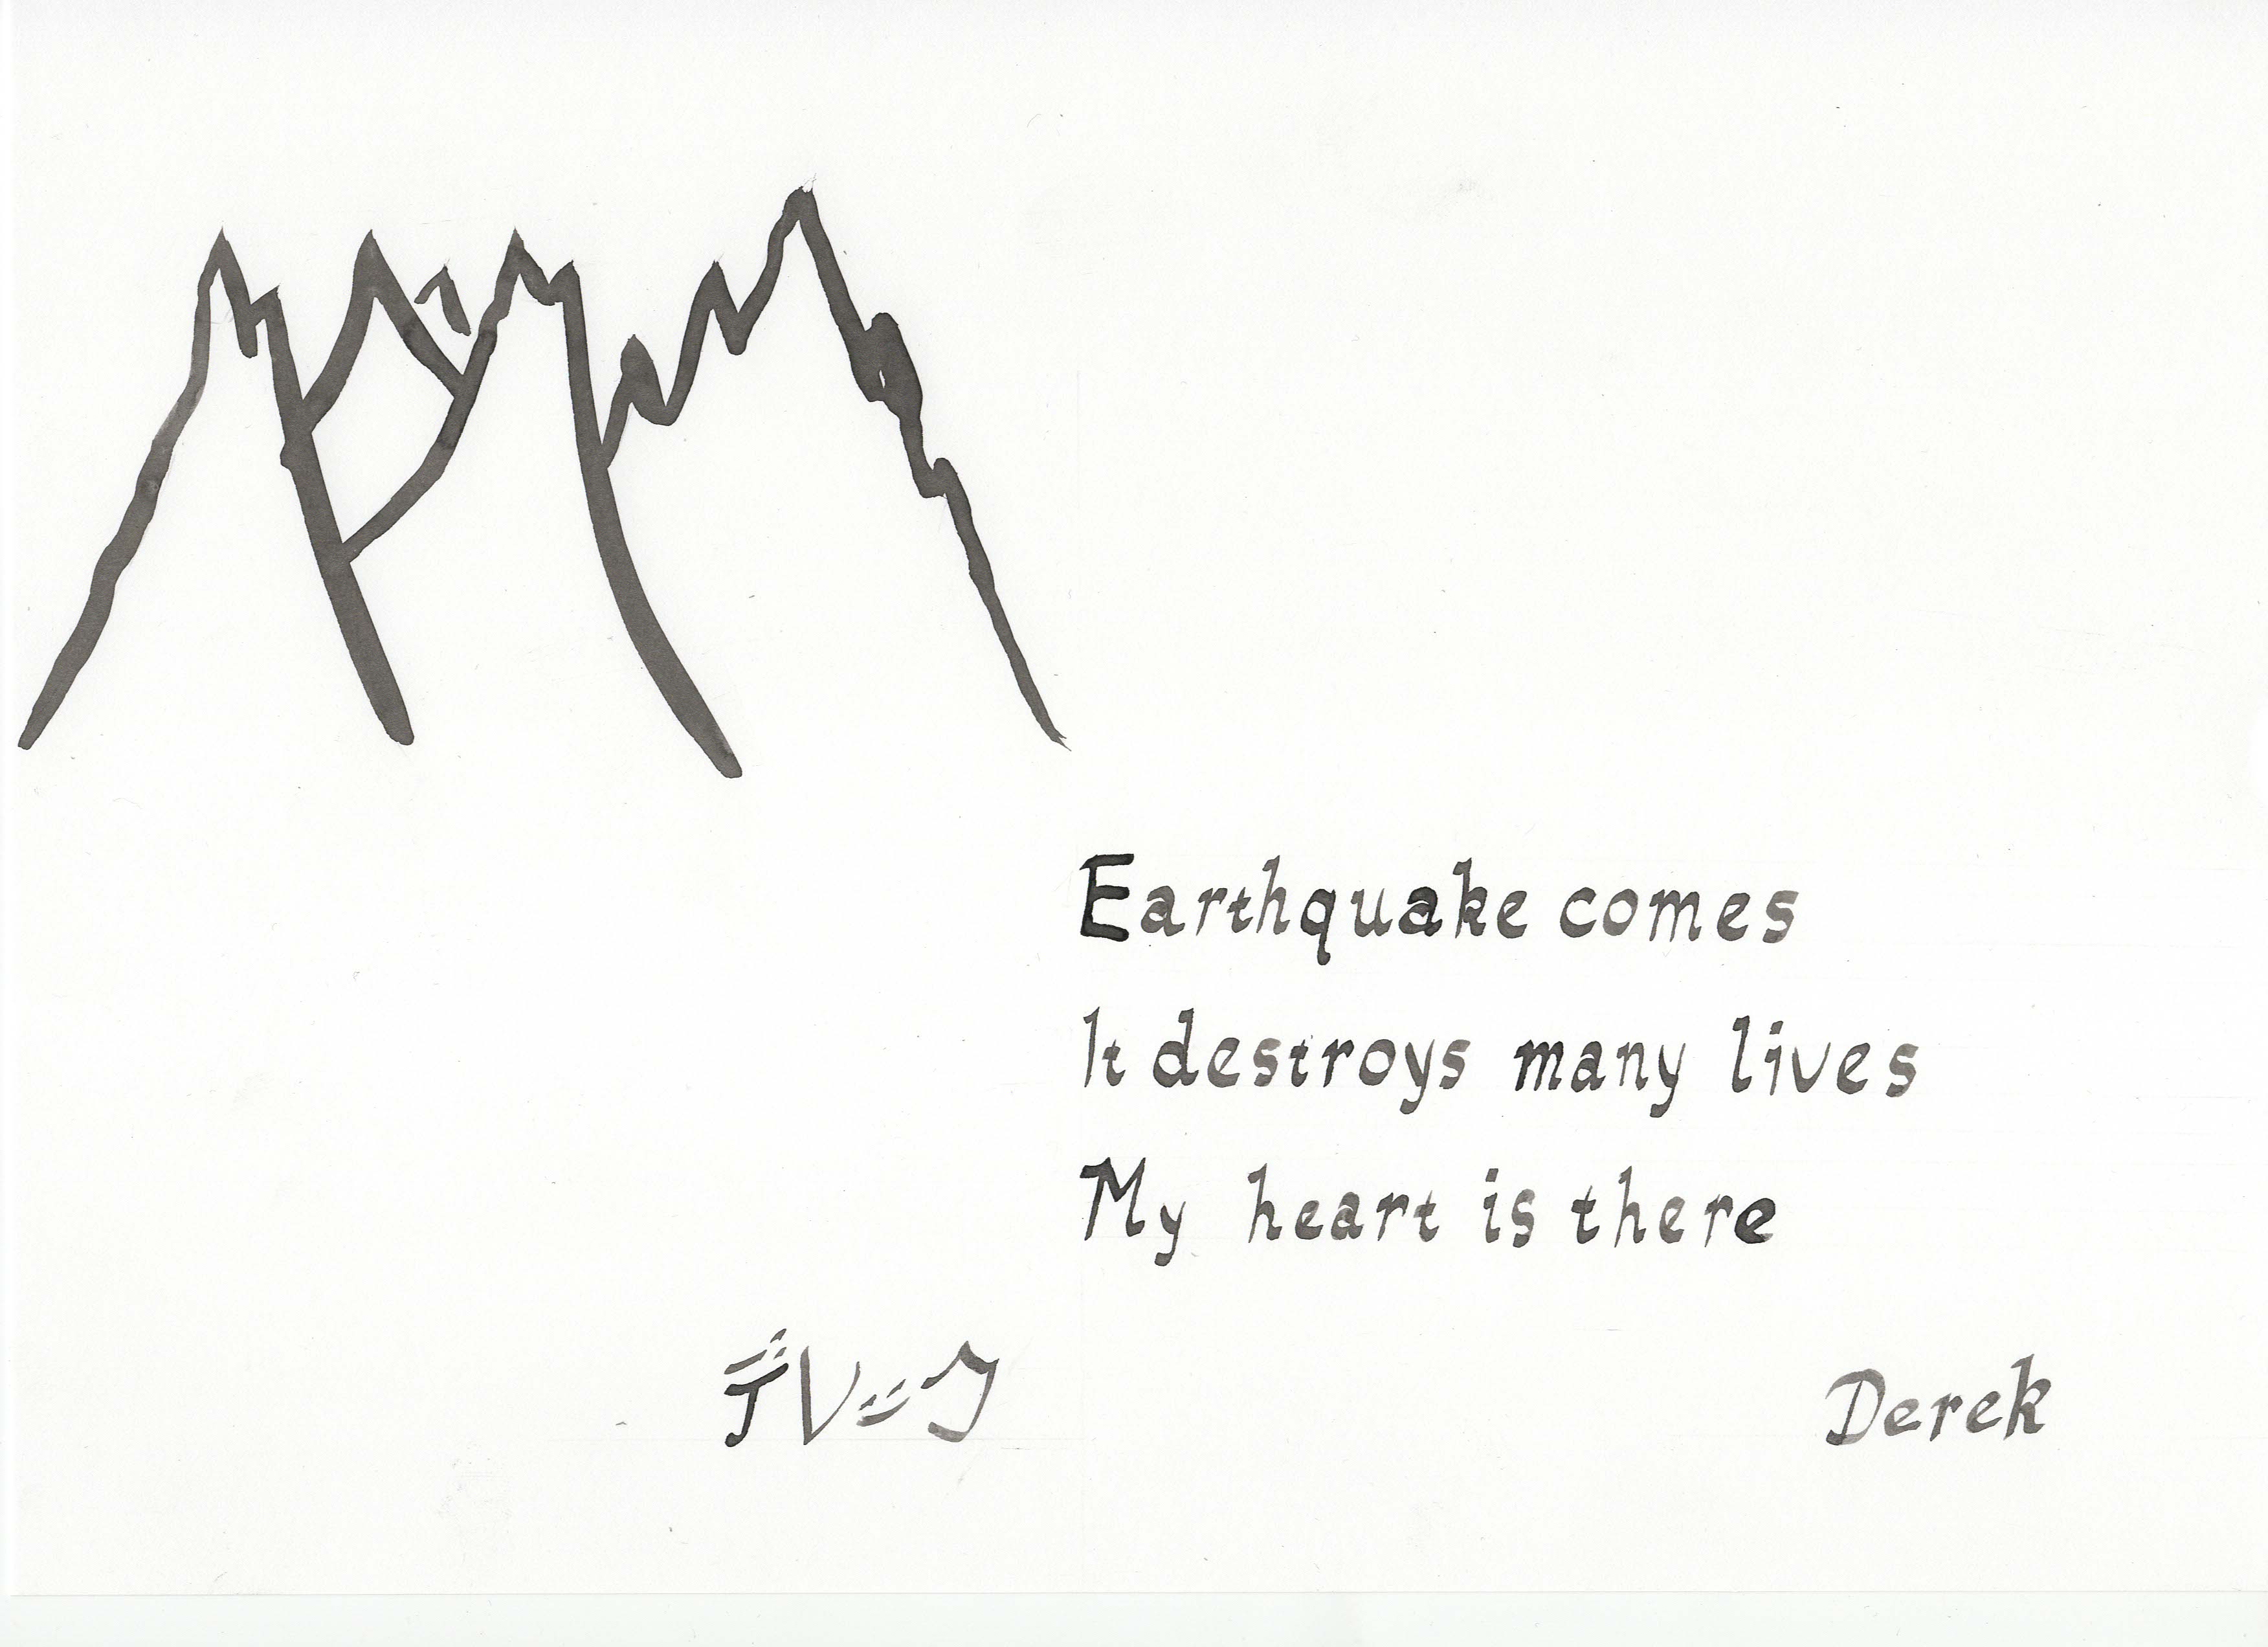 Earthquake comes
It destroys many lives
My heart is there
デレック Derek